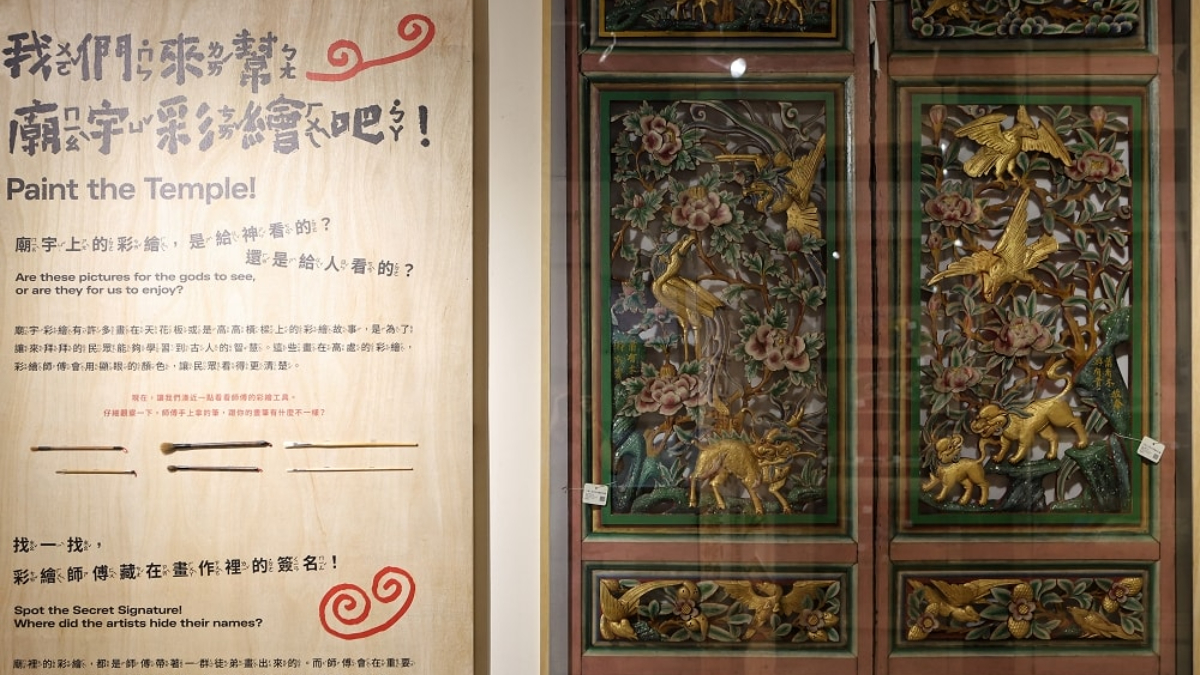 我們來幫
廟宇彩繪吧！
Paint the Temple!
廟宇上的彩繪，是給神看的？
還是給人看的？
Are these pictures for the gods to see,
or are they for us to enjoy?
廟宇彩繪有許多畫在天花板或是高高橫樑上的彩繪故事，是為了
讓來拜拜的民眾能夠學習到古人的智慧。這些畫在高處的彩繪，
彩繪師傅會用顯眼的顏色，讓民眾看得更清楚。
現在，讓我們湊近一點看看師傅的彩繪工具。
仔細觀察一下，師傅手上拿的筆，跟你的畫筆有什麼不一樣？
找一找，
彩繪師傅藏在畫作裡的簽名！
Spot the Secret Signature!
Where did the artists hide their names?
廟裡的彩繪，都是師傅帶著一群徒弟畫出來的。而師傅會在重要